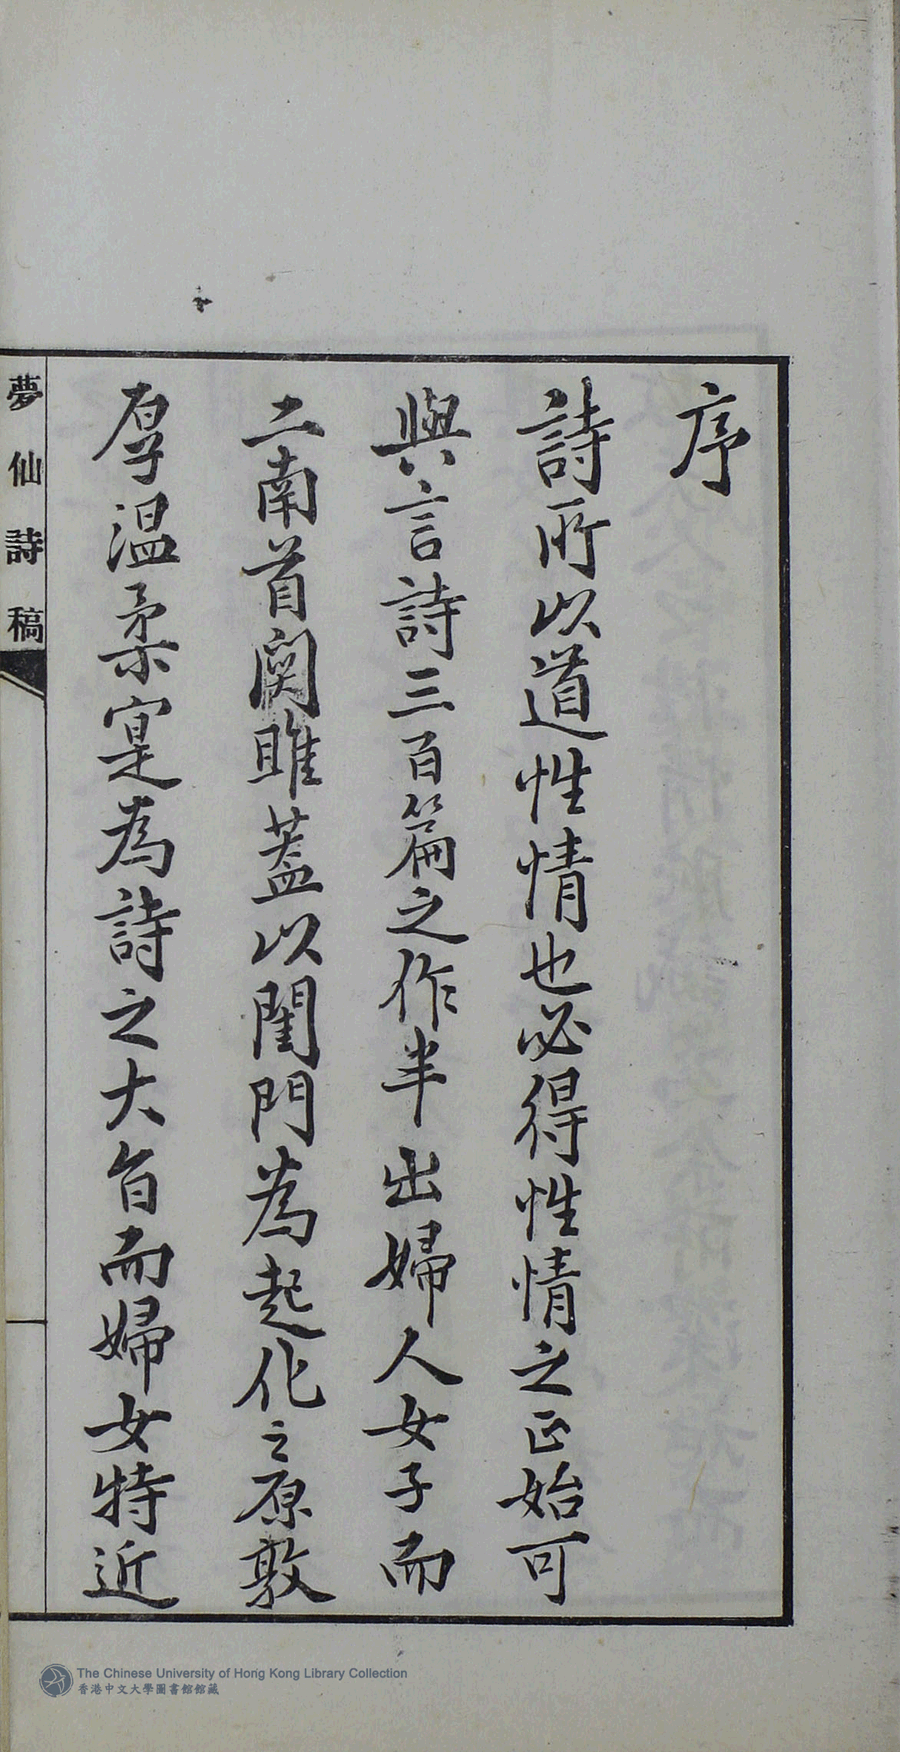 序
詩所以道性情也必得性情之正始可
與言詩三百篇之作半出婦人女子而
二南首關雎蓋以閨門為起化之原敦
厚温柔寔為詩之大旨而婦女特近
夢仙詩稿
The Chinese University of Hong Kong Library Collection
香港中文大學圖書館館藏